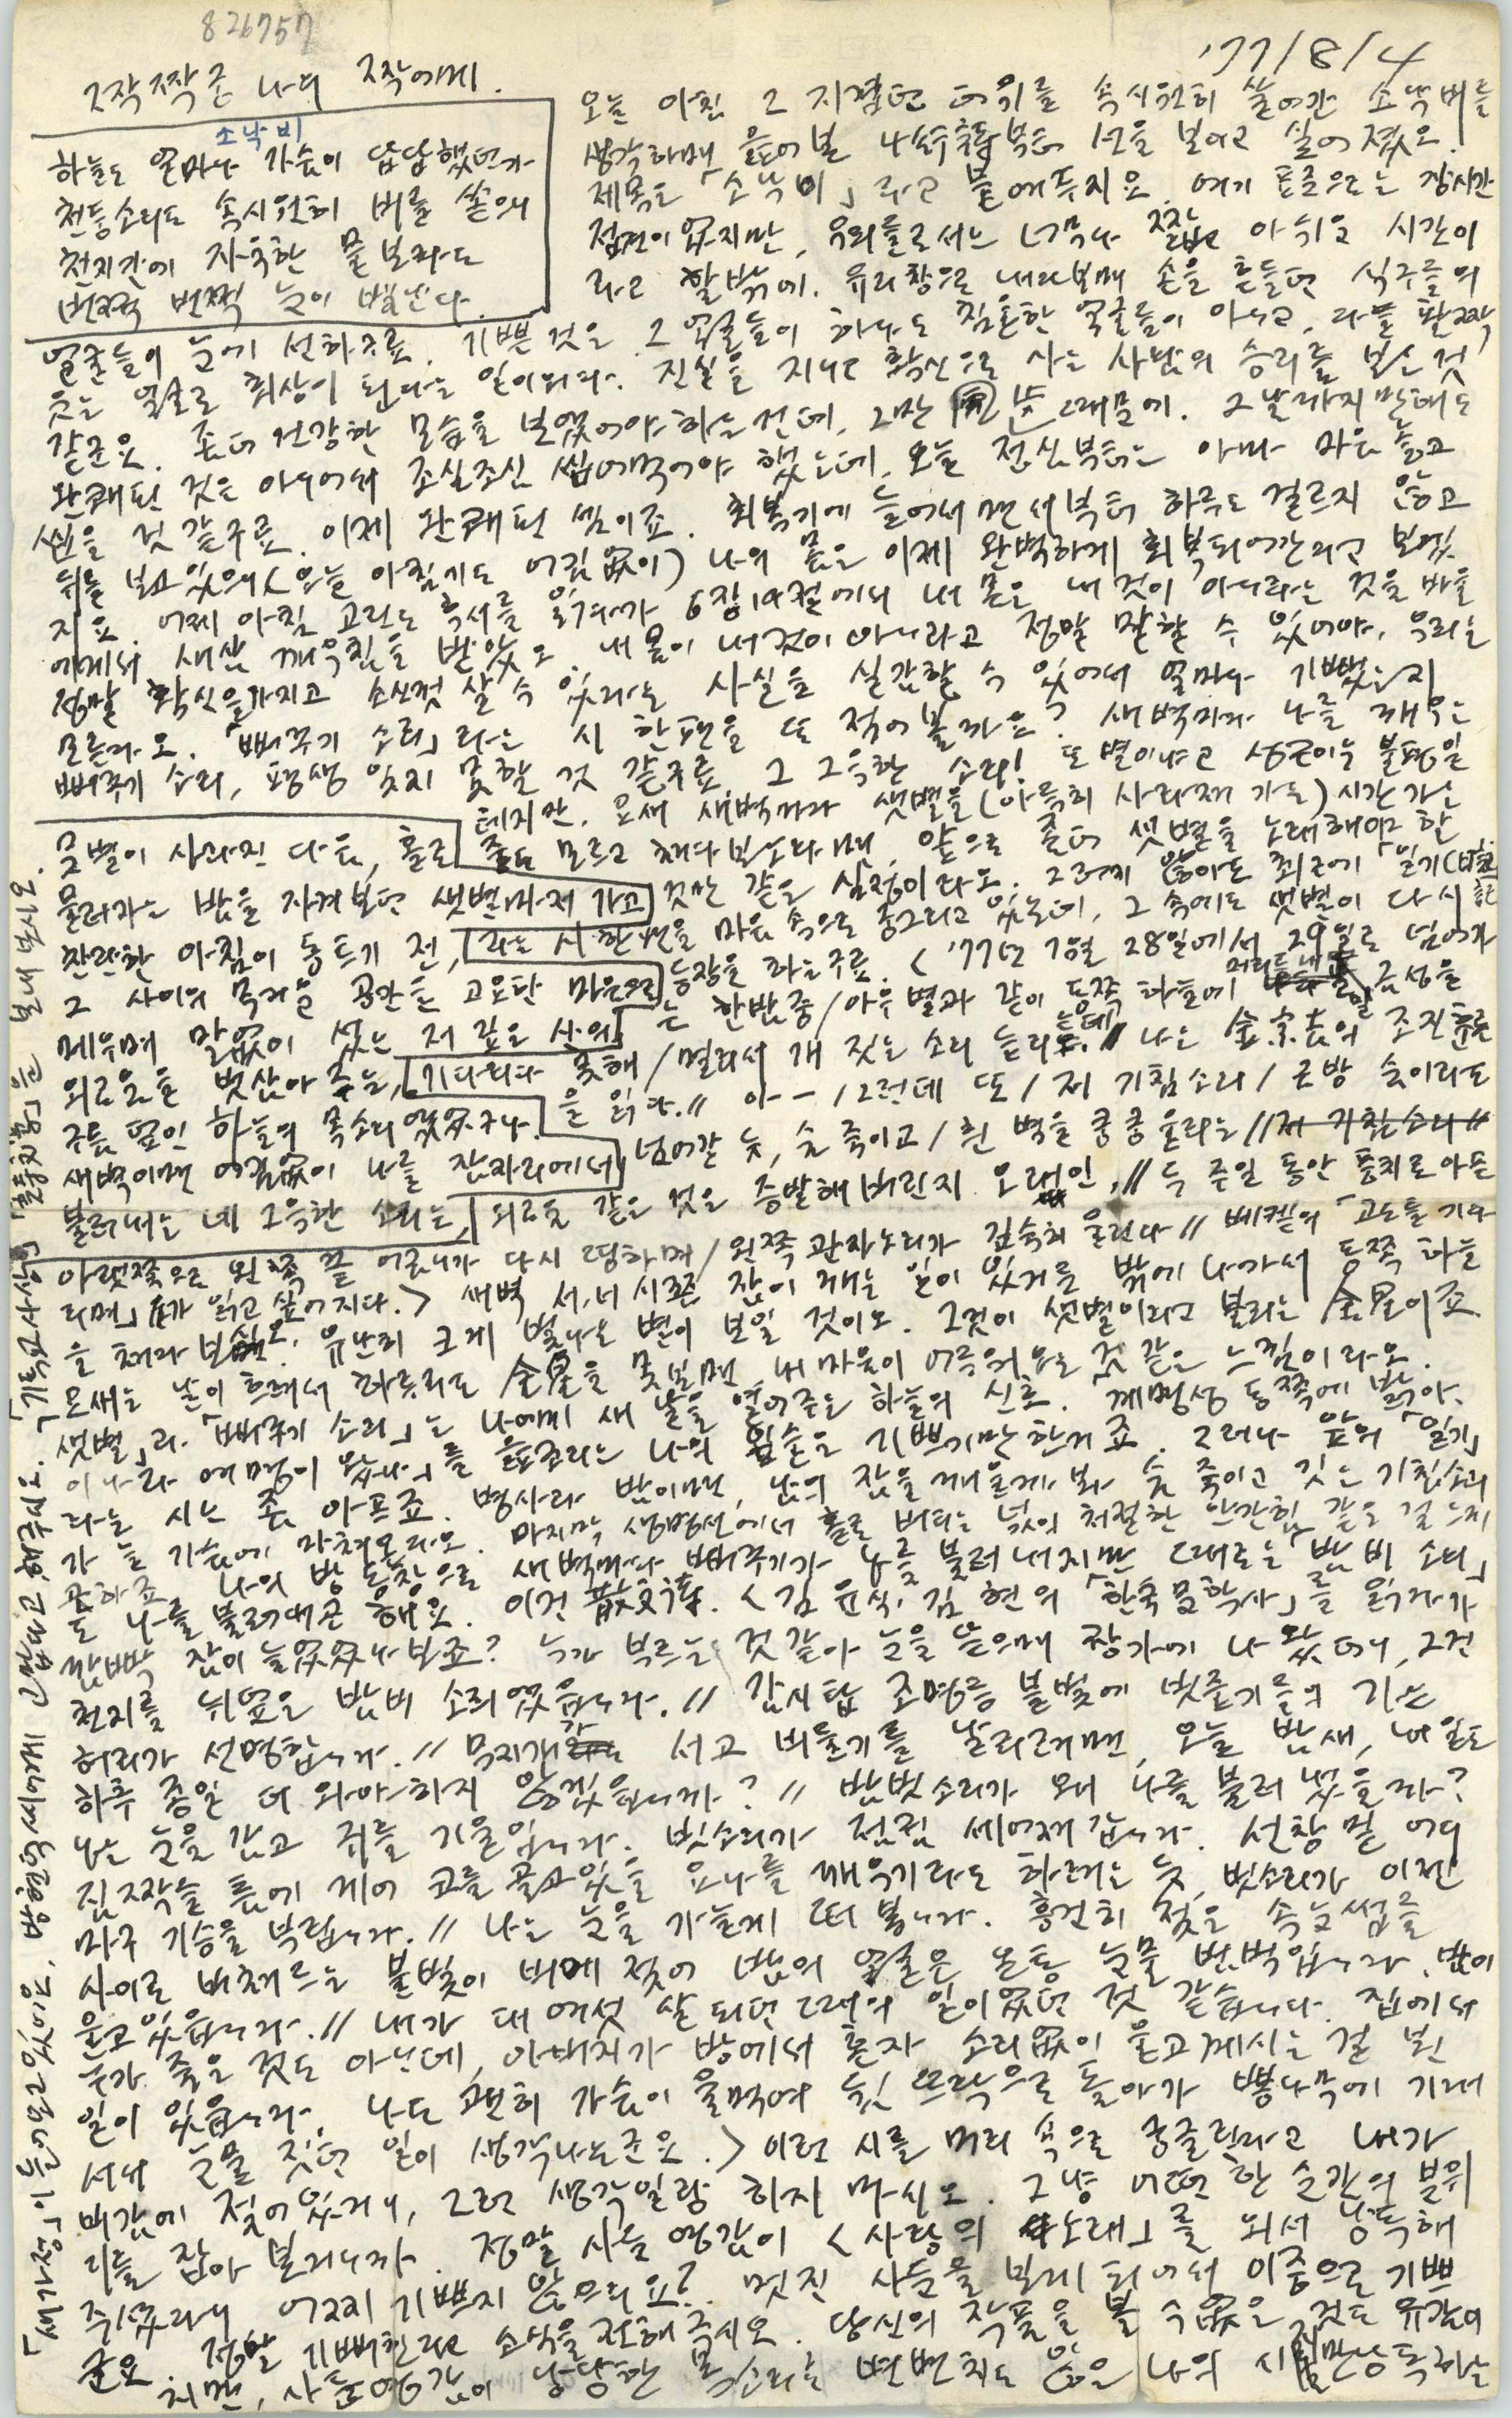 826757
'77/8/4
그 짝짝 준 나의 짝에게.
소낙비
하늘도 얼마나 가슴이 답답했던가
천둥소리도 속시원히 비를 쏟으니
천지간에 자욱한 물보라도
번쩍 번쩍 눈이 빛난다.
오늘 아침 그 지겹던 더위를 속시원히 쓸어간 소낙비를
생각하며 읊어본 나 부터 선을 보이고 싶어졌오.
제목은 「소낙비」라고 붙여두지요. 여기 표준으로는 장시간
접견이었지만, 우리들로서는 너무나 짧고 아쉬운 시간이
라고 할밖에. 유리창으로 내려보며 손을 흔들던 식구들의
얼굴들이 눈에 선하구료. 기쁜 것은 그 얼굴들이 하나도 침울한 얼굴들이 아니고, 다들 활짝
웃는 얼굴로 회상이 된다는 일이외다. 진실을 지니고 확신으로 사는 사람의 승리를 보는 것
같군요. 좀더 건강한 모습을 보였어야 하는 건데, 그만 때문에. 그날까지만 해도
완쾌된 것은 아니어서 조심조심 씹어먹어야 했는데, 오늘 점심부터는 아마 마음놓고
씹을 것 같구료. 이제 완쾌된 셈이죠. 회복기에 들어서면서부터 하루도 걸르지 않고
뒤를 보고 있으니(오늘 아침에도 어김없이) 나의 몸은 이제 완벽하게 회복되어간다고 보겠
지요. 어제 아침 고린도 후서를 읽다가 6장 19절에서 내 몸은 내 것이 아니라는 것을 바울
에게서 새삼 깨우침을 받았오. 내 몸이 내것이 아니라고 정말 말할 수 있어야, 우리는
정말 확신을 가지고 소신껏 살 수 있다는 사실을 실감할 수 있어서 얼마나 기뻤는지
모른다오. 「뻐꾸기 소리」라는 시 한편을 또 적어 볼까요? 새벽마다 나를 깨우는
뻐꾸기 소리, 평생 잊지 못할 것 같구료. 그 그윽한 소리! 또 별이냐고 성근이는 불평일
테지만, 요새 새벽마다 샛별을(아득히 사라져 가는) 시간 가는
줄도 모르고 쳐다보노라면, 앞으로 좀더 샛별을 노래해야 한
것만 같은 심정이라오. 그렇지 않아도 최근에 「일기(日記)」
라는 시 한편을 마음 속으로 중그리고 있는데, 그 속에도 샛별이 다시
등장을 하는구료. <'77년 7월 28일에서 29일로 넘어가
는 한밤중/아우 별과 같이 동쪽 하늘에 머리를 내밀 금성을
기다리다 못해/멀리서 개 짖는 소리 들리는데// 나는 金宗吉의 조진
을 읽다.// 아—/그런데 또/저 기침소리/곤방 숨이라도
넘어갈 듯, 숨 죽이고/흰 벽을 쿵쿵 울리는//저 기침소리//
외로움 같은 것은 증발해버린지 오래인,// 두 주일 동안 풍치로 아픈
뭇별이 사라진 다음, 홀로
물러가는 밤을 지켜보던 샛별마저 가고
찬란한 아침이 동트기 전,
그 사이의 무거운 공간을 고요한 마음으로
메우며 말없이 섰는 저 깊은 산의
외로움을 벗삼아 주는,
구름 덮인 하늘의 목소리였었구나.
새벽이면 어김없이 나를 잠자리에서
불러내는 네 그윽한 소리는,
아랫쪽으로 왼쪽 끝 어금니가 다시 띵하며/왼쪽 관자노리가 깊숙히 울린다// 베켙의 「고도를 기다
리며」가 읽고 싶어지다.> 새벽 서,너 시쯤 잠이 깨는 일이 있거든 밖에 나가서 동쪽 하늘
을 쳐다 보십시오. 유난히 크게 빛나는 별이 보일 것이오. 그것이 샛별이라고 불리는 金星이죠.
요새는 날이 흐려서 하루라도 金星을 못보면 내 마음이 어두워오는 것 같은 느낌이라오.
「샛별」과 「뻐꾸기 소리」는 나에게 새 날을 열어주는 하늘의 신호. 「계명성 동쪽에 밝아.
이 나라 여명이 왔다」를 읊조리는 나의 입술은 기쁘기만 한거죠. 그러나 앞의 「일기」
라는 시는 좀 아프죠. 병사라 밤이면, 남의 잠을 깨울까봐 숨 죽이고 짓는 기침소리
가 늘 가슴에 마쳐오라오. 마지막 생명선에서 홀로 버티는 넋의 처절한 안간힘 같은 걸 느끼
곤 하죠. 나의 방 동창으로 새벽마다 뻐꾸기가 나를 불러내지만 때로는 「밤비 소리」
도 나를 불러내곤 해요. 이건 散文詩. <김윤식, 김현의 「한국문학사」를 읽다가
깜빡 잠이 들었었나 보죠? 누가 부르는 것같아 눈을 뜨으며 창가에 나왔더니, 그건
천지를 뒤덮은 밤비 소리였읍니다.// 감시탑 조명등 불빛에 빗줄기들의 가는
허리가 선명합니다.// 무지개가 서고 비둘기를 날리려면, 오늘 밤새, 내일도
하루 종일 더 와야 하지 않겠읍니까?// 밤빗소리가 왜 나를 불러냈을까?
나는 눈을 감고 귀를 기울입니다. 빗소리가 점점 세어져 갑니다. 선창 밑 어디
짐짝들 틈에 끼어 코를 골고 있을 요나를 깨우기라도 하려는 듯, 빗소리가 이젠
마구 기승을 부립니다.// 나는 눈을 가늘게 떠 봅니다. 흥건히 젖은 속눈썹들
사이로 비쳐드는 불빛이 비에 젖어 밤의 얼굴은 온통 눈물 범벅입니다. 밤이
울고 있읍니다.// 내가 대여섯 살 되던 때의 일이었던 것 같습니다. 집에서
누가 죽은 것도 아닌데, 아버지가 방에서 혼자 소리없이 울고 계시는 걸 본
일이 있읍니다. 나도 괜히 가슴이 울먹여 뒷뜨락으로 돌아가 뽕나무에 기대
서서 눈물 짓던 일이 생각나는군요.> 이런 시를 머리 속으로 궁굴린다고 내가
비감에 젖어있거니, 그런 생각일랑 하지 마시오. 그냥 어떤 한 순간의 분위
기를 잡아 본거니까. 정말 사돈 영감이 <사랑의 노래」를 외서 낭독해
주셨다니 어찌 기쁘지 않으리요? 멋진 사돈을 보게 되어서 이중으로 기쁘
군요. 정말 기뻐한다고 소식을 전해 주시오. 당신의 작품을 볼 수 없은 것도 유감이
지만, 사돈영감이 낭랑한 목소리로 변변치도 않은 나의 시를 낭독하는
「새가정」이 들어오고 있오.